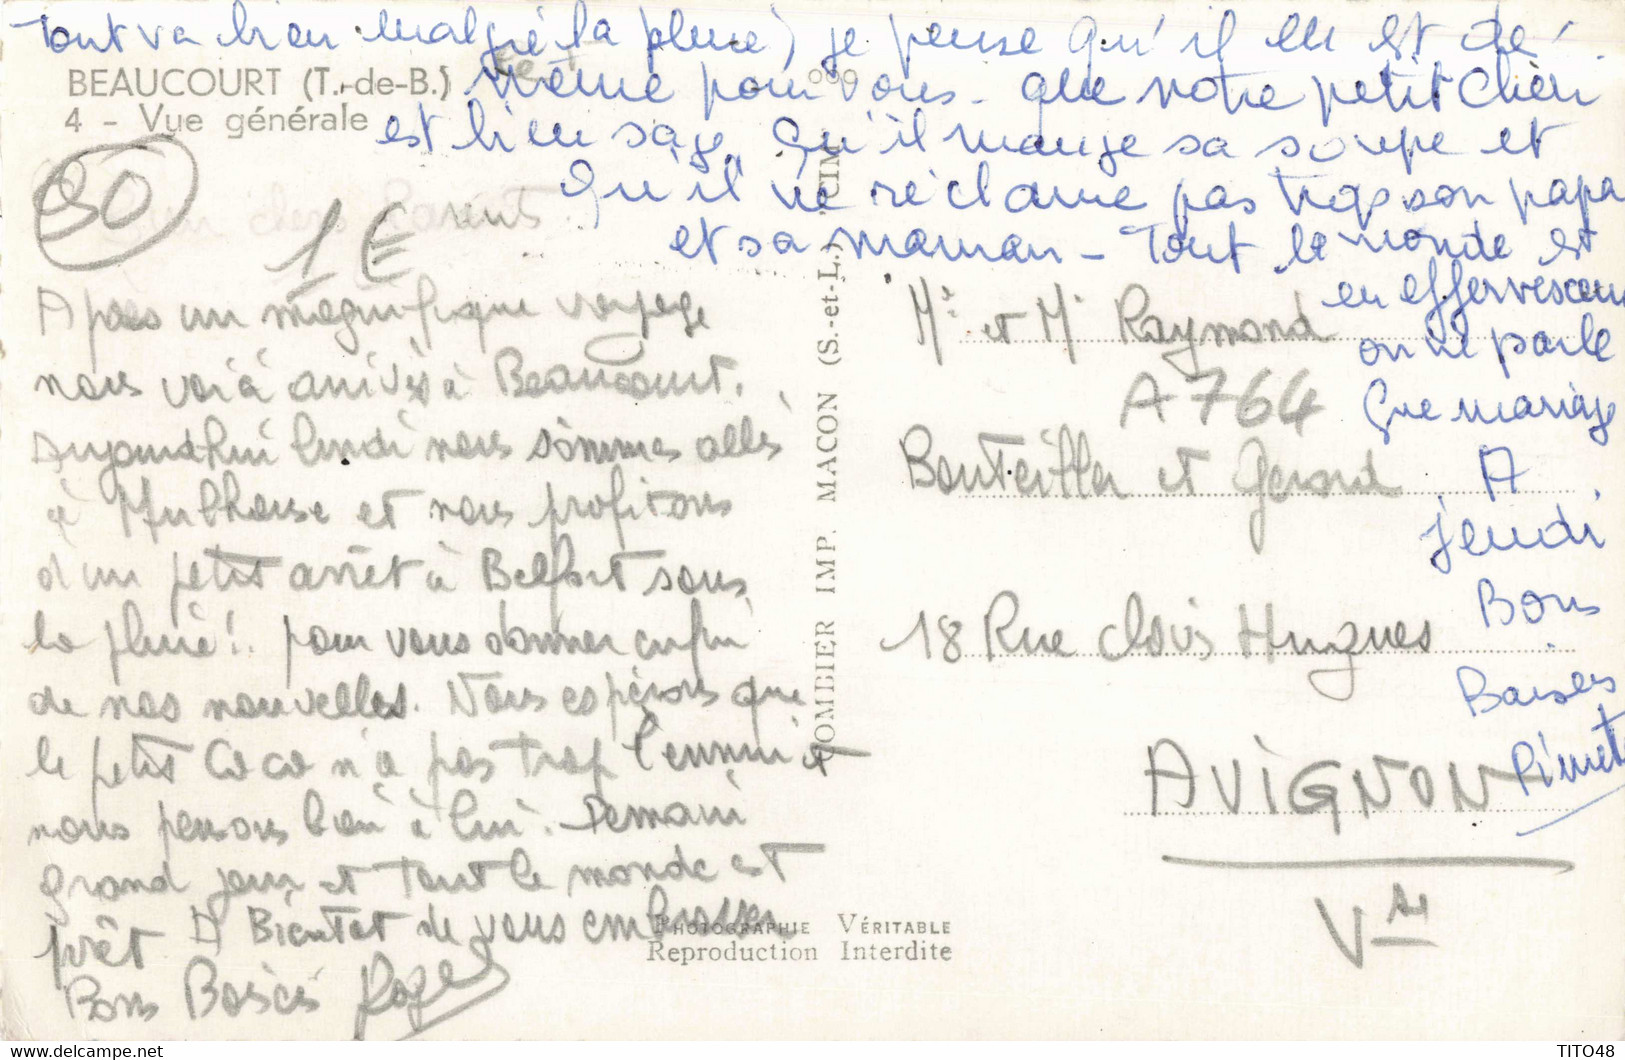 Tout va bien malgré la pluie) je pense qu'il en est de
BEAUCOURT (T.-de-B.)
même pour vous - que notre petit Chéri
4 - Vue générale
est bien sage, qu'il mange sa soupe et
qu'il ne réclame pas trop son papa
et sa maman - Tout le monde est
en effervescence
on ne parle
que mariage
A
jeudi
Bons
Baisers
90
1 €
A 764
Apres un magnifique voyage
nous voià arrivés à Beaucourt.
Aujourd'hui lundi nous sommes allés
à Mulhouse et nous profitons
d'un petit arrêt à Belfort sous
la pluie! pour vous donner enfin
de nos nouvelles. Nous espérons que
le petit Coco n'a pas trop l'ennui et
nous pensons bien à lui. Demain
grand jour et tout le monde est
prêt A Bientot de vous embrasser
Bons Baisés Roger
COMBIER IMP. MACON (S.-et-L.) CIM
Mr et Me Raymond
Bouteiller et Gerard
18 Rue Clovis Hugues
AVIGNON
Vse
PHOTOGRAPHIE VÉRITABLE
Reproduction Interdite
TITO48